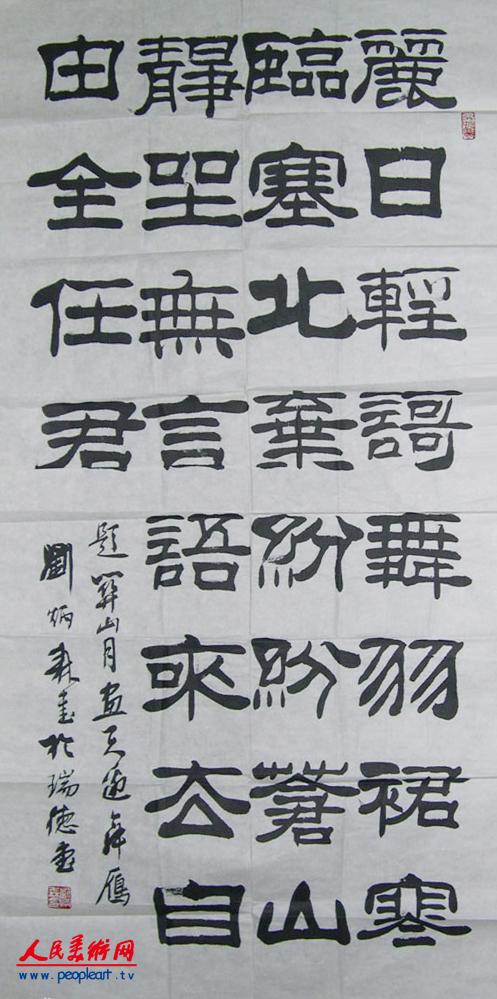 麗日輕謌舞羽裙寒
臨塞北棄紛紛蒼山
靜坐無言語來去自
由全任君
題關山月畫天邊舞雁
劉炳森書於瑞德畫
人民美術网
www.peopleart.tv